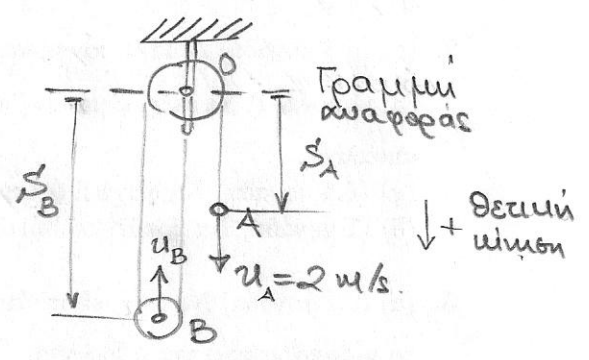 O
Γραμμή
αναφοράς
S_A
S_B
A
+ θετική
κίνηση
u_B
u_A = 2 m/s.
B